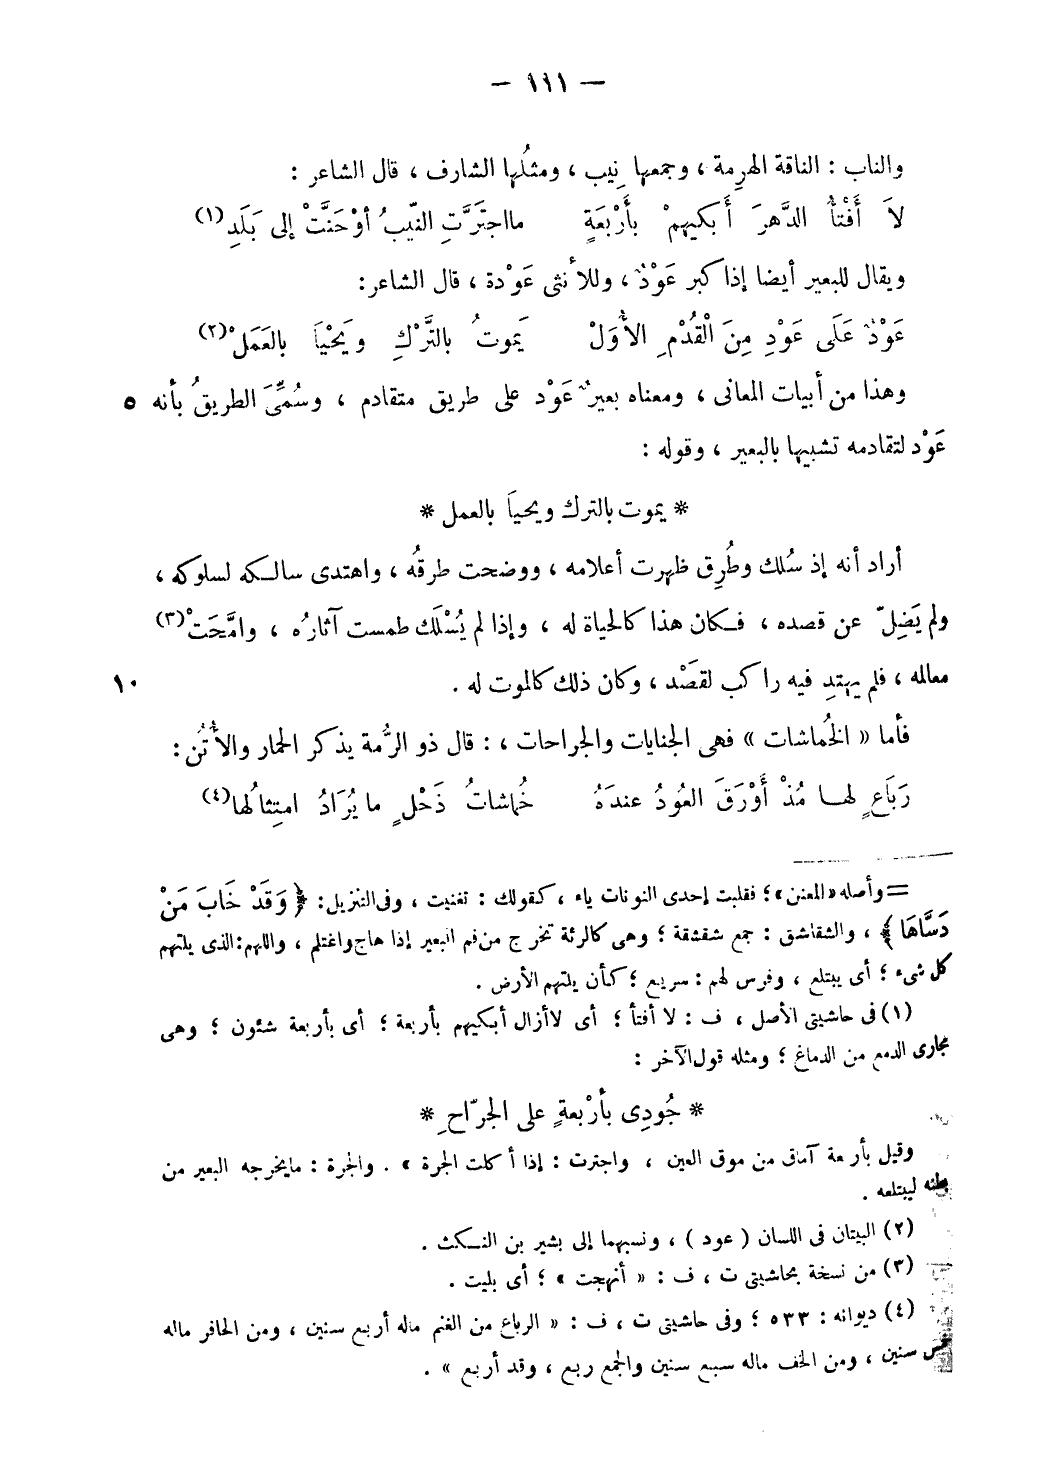 — ١١١ —
والناب : الناقة الهرِمة ، وجمعها نِيب ، ومثلُها الشارف ، قال الشاعر :
لاَ أَفْتأُ الدَّهرَ أَبكيهمْ بأَرْبَعَةٍ مااجتَرَّتِ النِّيبُ أوْحَنَّتْ إلى بَلَدِ(١)
ويقال للبعير أيضا إذا كبر عَوْدٌ ، وللأنثى عَوْدة ، قال الشاعر:
عَوْدٌ عَلَى عَوْدٍ مِنَ الْقُدْمِ الأُوَلْ يَموتُ بالتَّرْكِ ويَحْيَا بالعَمَلْ(٢)
وهذا من أبيات المعانى ، ومعناه بعيرٌ عَوْد على طريق متقادم ، وسُمِّىَ الطريقُ بأنه ٥
عَوْد لتقادمه تشبيها بالبعير ، وقوله :
* يموت بالترك ويحيا بالعمل *
أراد أنه إذ سُلك وطُرِق ظهرت أعلامه ، ووضحت طرقُه ، واهتدى سالكه لسلوكه ،
ولم يَضِلّ عن قصده ، فكان هذا كالحياة له ، وإذا لم يُسْلَك طمست آثارُه ، وامَّحَتْ(٣)
معالمه ، فلم يهتدِ فيه راكب لقَصْد ، وكان ذلك كالموت له . ١٠
فأما « الخُماشات » فهى الجنايات والجراحات ، : قال ذو الرُّمة يذكر الحمار والأُتُن :
رَبَاعٍ لها مُذْ أَوْرَقَ العُودُ عندَهُ خُماشاتُ ذَحْلٍ ما يُرَادُ امتِثالُها(٤)
= وأصله «المعنن»؛ فقلبت إحدى النونات ياء ، كقولك : تغنيت ، وفى التنزيل: ﴿ وَقَدْ خَابَ مَنْ
دَسَّاهَا ﴾ ، والشقاشق : جمع شقشقة ؛ وهى كالرئة تخرج من فم البعير إذا هاج واغتلم ، واللهم:الذى يلتهم
كل شىء ؛ أى يبتلع ، وفرس لهم : سريع ؛ كأن يلتهم الأرض .
(١) فى حاشيتى الأصل ، ف : لا أفتأ ؛ أى لاأزال أبكيهم بأربعة ؛ أى بأربعة شئون ؛ وهى
مجارى الدمع من الدماغ ؛ ومثله قول الآخر :
* جُودِى بأرْبعةٍ على الجرّاحِ *
وقيل بأربعة آماق من موق العين ، واجترت : إذا أكلت الجرة » . والجرة : مايخرجه البعير من
بطنه ليبتلعه .
(٢) البيتان فى اللسان ( عود ) ، ونسبهما إلى بشير بن النكث .
(٣) من نسخة بحاشيتى ت ، ف : « أنهجت » ؛ أى بليت .
(٤) ديوانه : ٥٣٣ ؛ وفى حاشيتى ت ، ف : « الرباع من الغنم ماله أربع سنين ، ومن الحافر ماله
خمس سنين ، ومن الخف ماله سبع سنين والجمع ربع ، وقد أربع » .